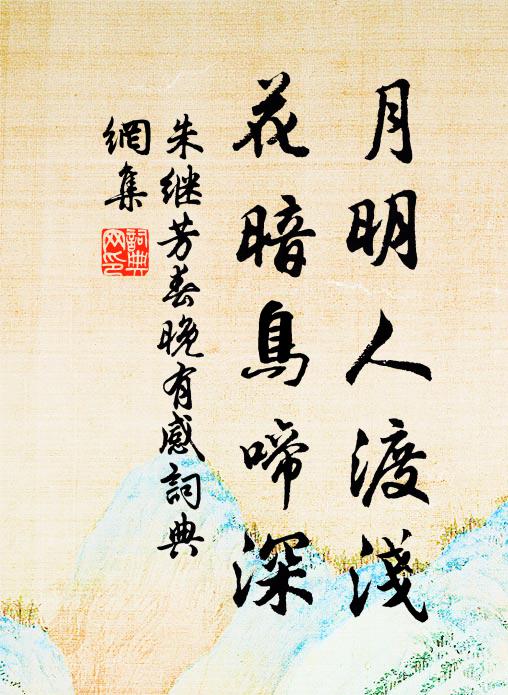 月明人渡淺
花暗鳥啼深
朱继芳春晚有感詞典
網集
詞典
网印